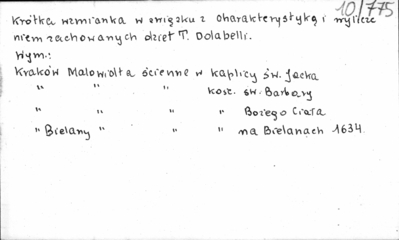 10/775
Krótka wzmianka w związku z charakterystyką i wylicze
niem zachowanych dzieł T. Dolabelli.
Wym.:
Kraków Malowidła ścienne w kaplicy św. Jacka
" " " kośc. św. Barbary
" " " " Bożego Ciała
" Bielany " " " na Bielanach 1634.